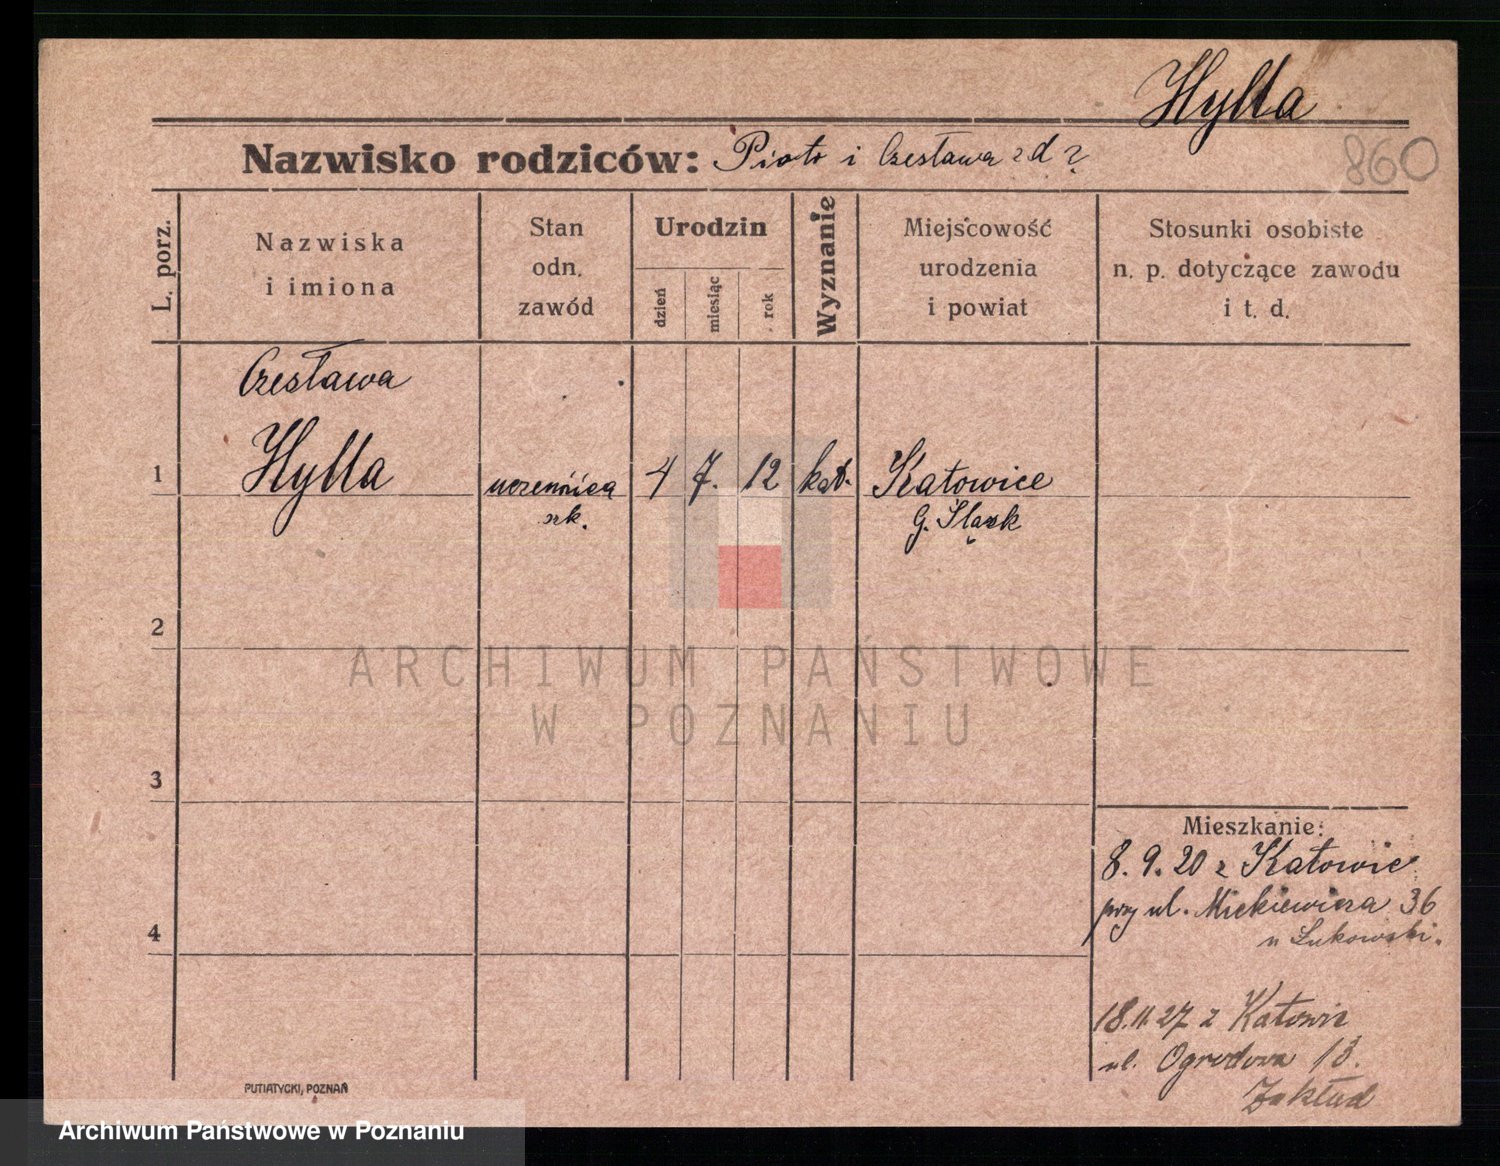 Hylla
Nazwisko rodziców: Piotr i Czesława z d ?
860
L. porz.
Nazwiska
i imiona
Stan
odn.
zawód
Urodzin
dzień
miesiąc
rok
Wyznanie
Miejscowość
urodzenia
i powiat
Stosunki osobiste
n. p. dotyczące zawodu
i t. d.
Czesława
1 Hylla uczennica 4 7. 12 kat. Katowice
szk. G. Śląsk
2
ARCHIWUM PAŃSTWOWE
W POZNANIU
3
Mieszkanie:
8. 9. 20 z Katowic
przy ul. Mickiewicza 36
u Łukowski.
4
18.11.27 z Katowic
ul. Ogrodowa 13.
Zakład
PUTIATYCKI, POZNAŃ
Archiwum Państwowe w Poznaniu